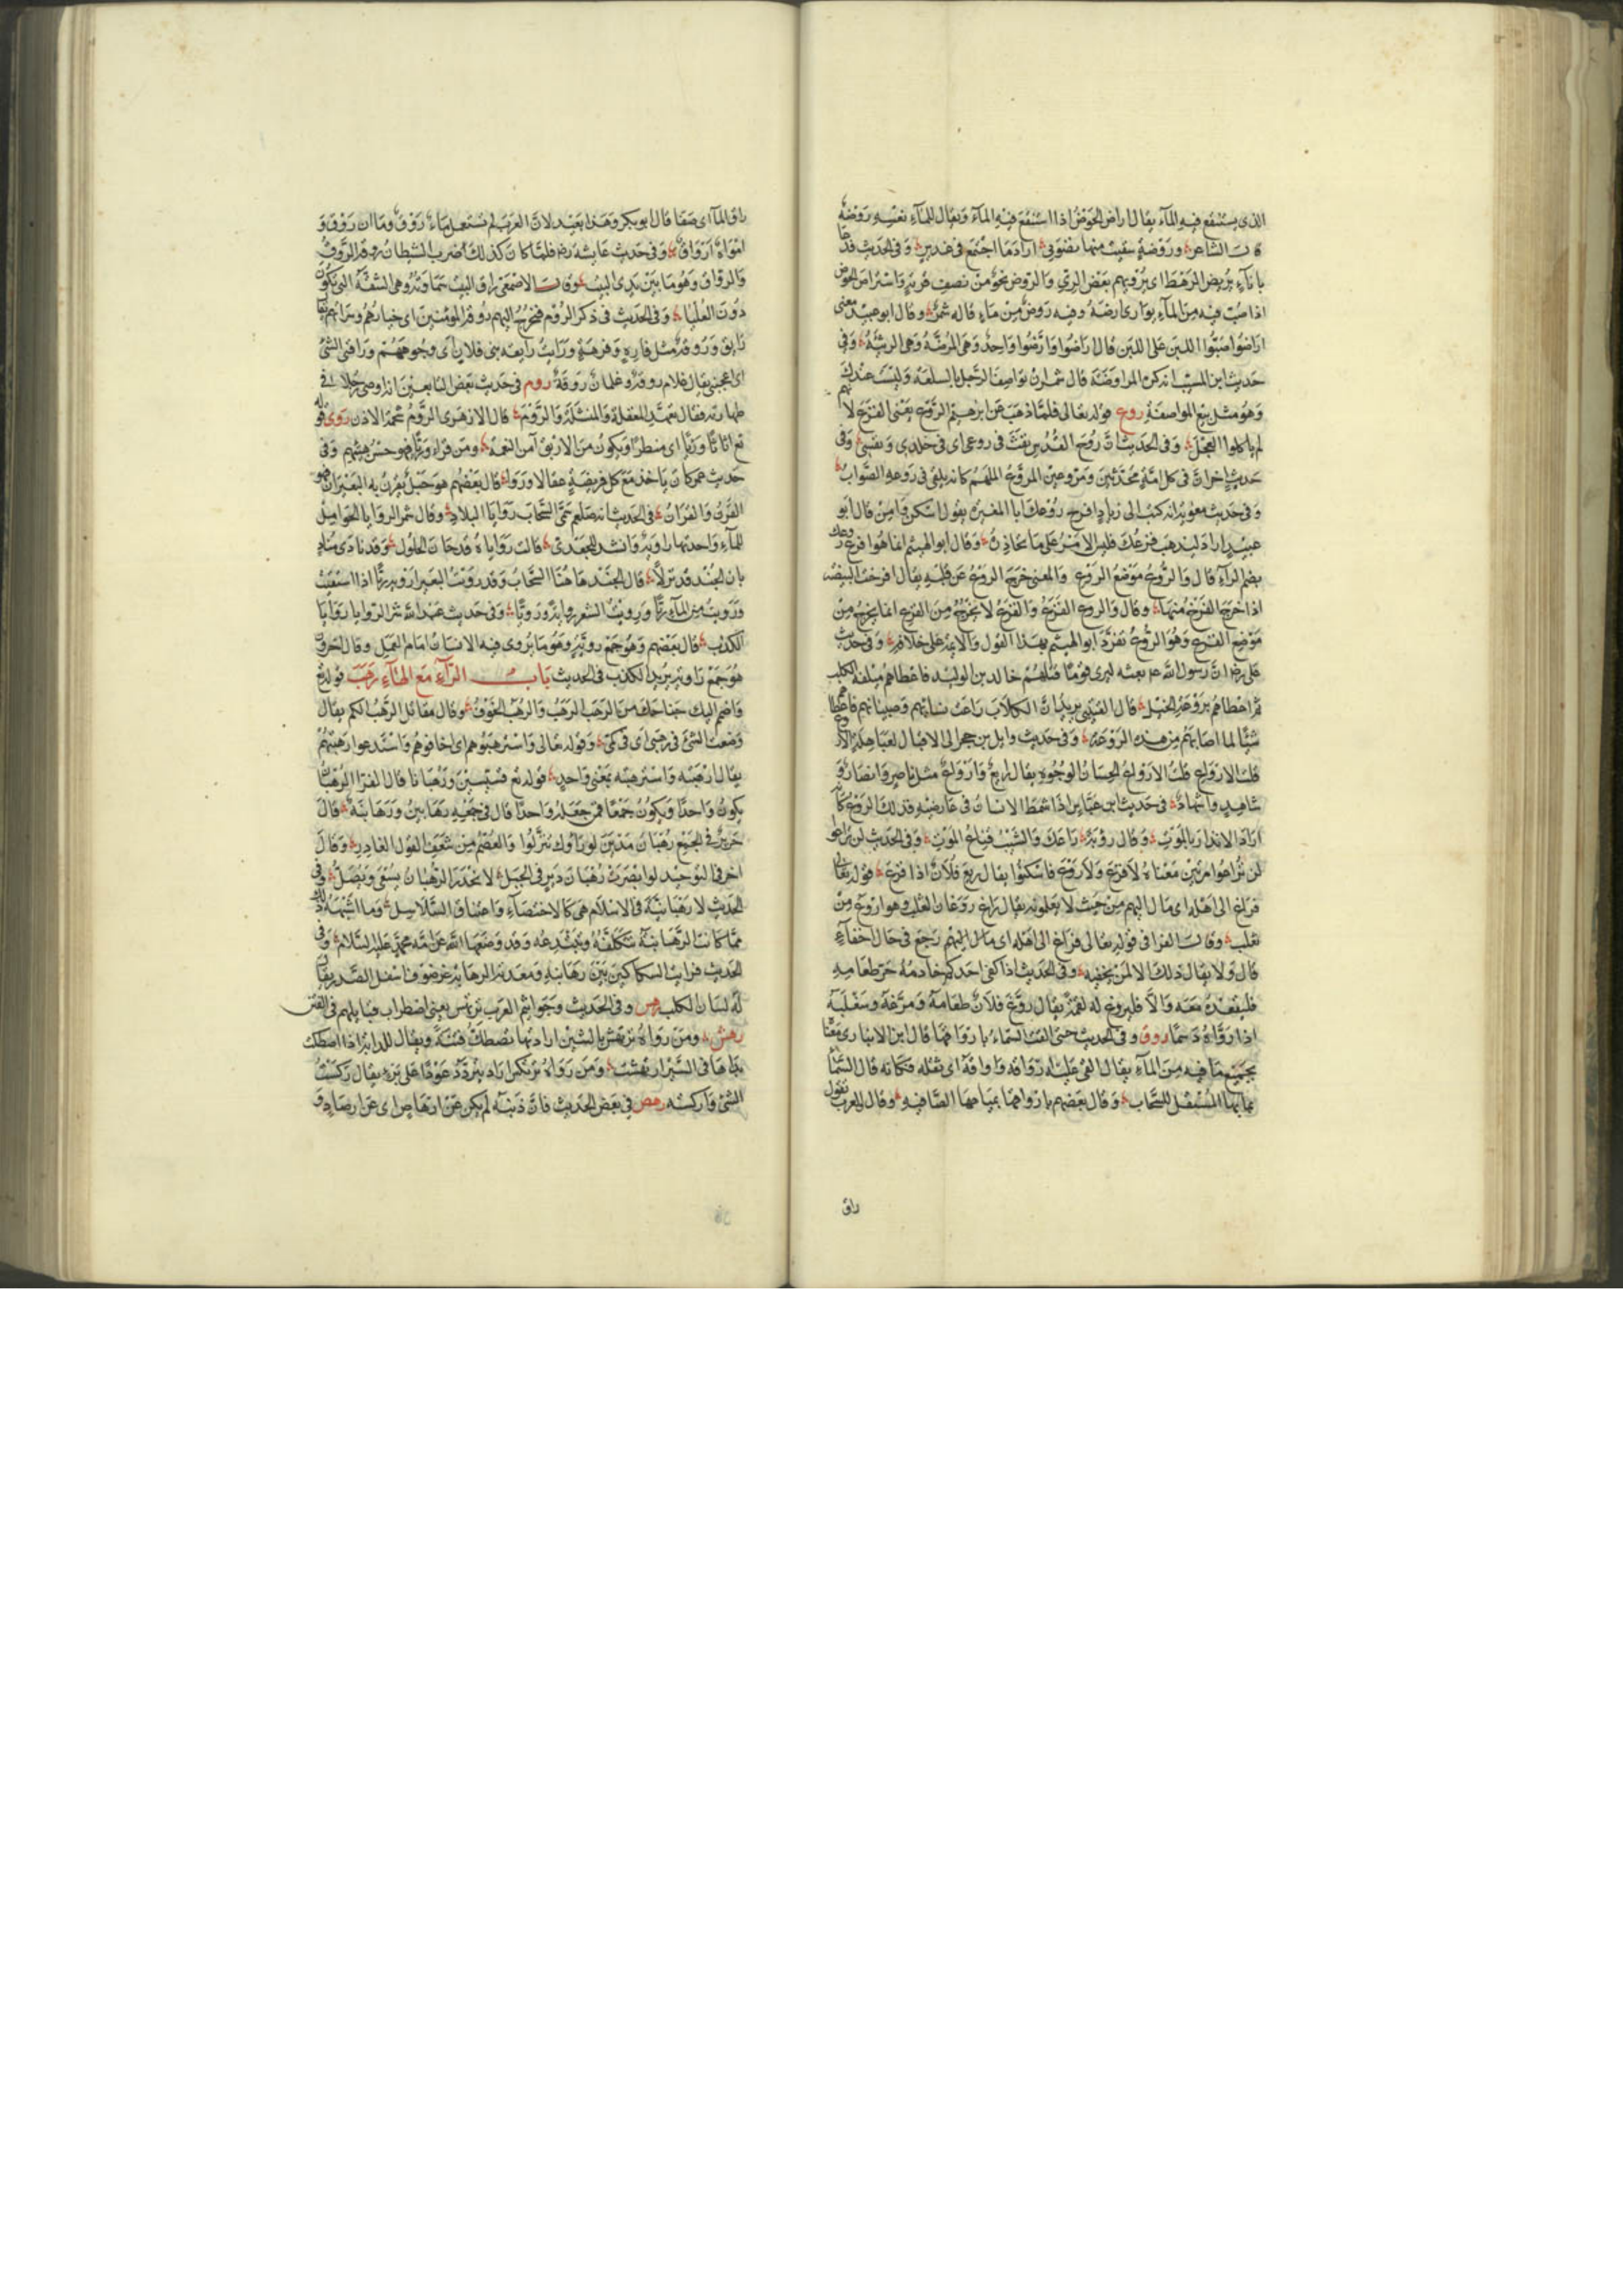 الذى يستنقع فيه الماء يقال اراض الحوض اذا استنقع فيه الماء ويقال للماء نفسه روضة
قال الشاعر وروضة سقيت منها نضوتي اراد ما اجتمع فى غدير وفى الحديث فدعا
باناء يريض الرهط اى يرويهم بعض الري والروض نحو من نصف قربة واستراض الحوض
اذا صب فيه من الماء يوارى ارضه وفيه روض من ماء قاله شمر وقال ابو عبيد معنى
اراضوا صبوا اللبن على اللبن قال اراضوا وارضوا واحد وهى المرضة وهى الرثيئة وفى
حديث ابن المسيب انه كره المراوضة قال شمر ان تواصف الرجل بالسلعة وليست عندك
وهو مثل بيع المواصفة روع قوله تعالى فلما ذهب عن ابرهيم الروع يعنى الفزع
لم ياكلوا العجل وفى الحديث ان روح القدس نفث فى روعى اى فى خلدى ونفسى وفى
حديث اخر ان فى كل امة محدثين ومروعين المروع الملهم كانه يلقى فى روعه الصواب
وفى حديث معوية انه كتب الى زياد افرخ روعك ابا المغيرة يقول اسكن وامن قال ابو
عبيد اراد ليذهب فزعك فليس الامر على ما تحاذر وقال ابو الهيثم انما هو افرخ روعك
بضم الراء قال والروع موضع الروع والمعنى خرج الروع عن قلبه يقال افرخت البيضة
اذا خرج الفرخ منها وقال والروع الفزع والفزع لا يخرج من الفزع انما يخرج من
موضع الفزع وهو الروع تفرد ابو الهيثم بهذا القول والائمة على خلافه وفى حديث
على رضه ان رسول الله عم بعثه ليدى قوما قتلهم خالد بن الوليد فاعطاهم ميلغة الكلب
ثم اعطاهم بروعة الخيل قال القتيبى يريد ان الكلاب راعت نساءهم وصبيانهم فاعطاهم
شيئا لما اصابهم من هذه الروعة وفى حديث وايل بن حجر الى الاقيال العباهلة الاروع
قلت الارواع الحسان الوجوه يقال رايع وارواع مثل ناصر وانصار و
شاهد واشهاد فى حديث ابن عباس اذا شمط الانسان فى عارضيه فذلك الروع كانه
اراد الانذار بالموت وقال روبة راعك والشيب قناع الموت وفى الحديث لن تراعوا
لن تراعوا مرتين معناه لا فزع ولا روع فاسكنوا يقال ريع فلان اذا فزع قوله تعالى
فراغ الى اهله اى مال اليهم من حيث لا يعلمون يقال راغ روغان الثعلب وهو اروغ من
ثعلب وقال الفرا فى قوله تعالى فراغ الى اهله اى مال اليهم رجع فى حال اخفاء
قال ولا يقال ذلك الا لمن يخفيه وفى الحديث اذا كفى احدكم خادمه حر طعامه
فليقعده معه والا فليروغ له لقمة يقال روغ فلان طعامه ومرغه وسغبله
اذا رواه دسما روق وفى الحديث حتى القت السماء باروافها قال ابن الانبارى معناه
بجميع ما فيه من الماء يقال القى عليه ارواقه واواقه اى ثقله فكانه قال السماء
بمائها المستقل للسحاب وقال بعضهم باروافها بمياهها الصافية وقال العرب تقول
راق
راق الماء اى صفا قال ابو بكر وهذا بعيد لان العرب لم تستعمل ماء روق وماءان روقان و
امواه ارواق وفى حديث عايشة رضه فلما كان كذلك ضرب الشيطان روقه الروق
والرواق وهو ما بين يدى البيت وقال الاصمعى رواق البيت سماوته وهى الشقة التى تكون
دون العليا وفى الحديث فى ذكر الروم فتخرج اليهم روقة المؤمنين اى خيارهم وسراتهم يقال
رايق وروقة مثل فاره وفرهة ورايت رايعة بنى فلان اى وجوههم وراقنى الشئ
اى اعجبنى يقال غلام روقة وغلمان روقة روم فى حديث بعض التابعين انه اوصى رجلا فى
طهارته فقال تعهد المغفلة والمنشلة والروم قال الازهرى الروم شحمة الاذن روى قوله
تع اثاثا وريا اى منظرا ويكون من الارتواء من النعمة ومن قراه وريا فهو حسن هيئتهم وفى
حديث عمر كان ياخذ مع كل فريضة عقالا ورواء قال بعضهم هو حبل يقرن به البعيران وهو
القرن والقران فى الحديث انه صلعم سمى السحاب روايا البلاد وقال شمر الروايا الحوامل
للماء واحدتها راوية وانشد للجعدى قالت روايا قد حان الحلول وقد نادى مناد
بان الجند قد نزلا قال الجند هاهنا السحاب وقد رويت البعير ارويه ريا اذا استقيت
ورويت من الماء ريا ورويت الشعر رواية وروية وفى حديث عبد الله شر الروايا روايا
الكذب قال بعضهم وهو جمع روية وهو ما يروى فيه الانسان امام العمل وقال اخرون
هو جمع راوية يريد الكذب فى الحديث باب الراء مع الهاء رهب قوله تع
واضمم اليك جناحك من الرهب الرهب والرهب الخوف وقال مقاتل الرهب الكم يقال
وضعت الشئ فى رهبى اى فى كمى وقوله تعالى واسترهبوهم اى اخافوهم واستدعوا رهبتهم
يقال ارهبته واسترهبته بمعنى واحد قوله تع قسيسين ورهبانا قال الفرا الرهبان
يكون واحدا ويكون جمعا فمن جعله واحدا قال فى جمعه رهابين ورهابنة قال
جرير فى الجميع رهبان مدين لو راوك تنزلوا والعصم من شعف العقول الفادر وقال
اخر فى التوحيد لو ابصرت رهبان دير فى الجبل لانحدر الرهبان يسعى ويصل وفى
الحديث لا رهبانية فى الاسلام هى كالاختصاء واعتناق السلاسل وما اشبه ذلك
مما كانت الرهابنة تتكلفه وتبتدعه وقد وضعها الله عن امة محمد عليه السلام وفى
الحديث فرايت السكاكين بين رهابته ومعدته الرهابة غرضوف اسفل الصدر يقال
له لسان الكلب رهس وفى الحديث وجراثيم العرب ترتهس يعنى اضطراب قبايلهم فى الفتن
رهش ومن رواه ترتهش بالشين اراد تصطك فتنة ويقال للدابة اذا اصطكت
يداها فى السير ارتهشت ومن رواه ترتكس اراد يتردد عودا على بدء يقال ركست
الشئ واركسته رهص فى بعض الحديث فان ذنبه لم يكن عن ارهاص اى عن ارصاد و